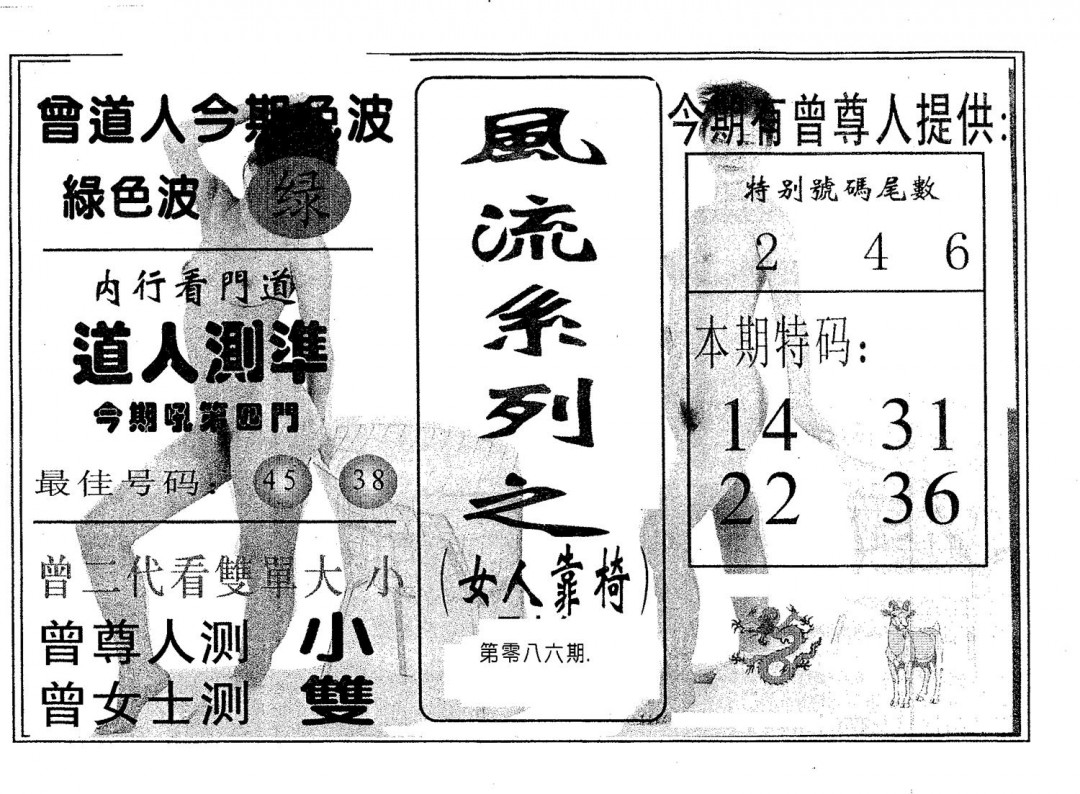 曾道人今期色波
綠色波 绿
内行看門道
道人測準
今期吼第四門
最佳号码: 45 38
曾二代看雙單大小
曾尊人测 小
曾女士测 雙
風流系列之
(女人靠椅)
第零八六期.
今期有曾尊人提供:
特别號碼尾數
2 4 6
本期特码:
14 31
22 36